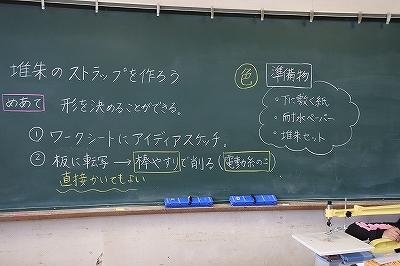 堆朱のストラップを作ろう
めあて 形を決めることができる。
① ワークシートにアイディアスケッチ。
② 板に転写 → 棒やすりで削る(電動糸のこ)
直接かいてもよい
色 準備物
・下に敷く紙
・耐水ペーパー
・堆朱セット